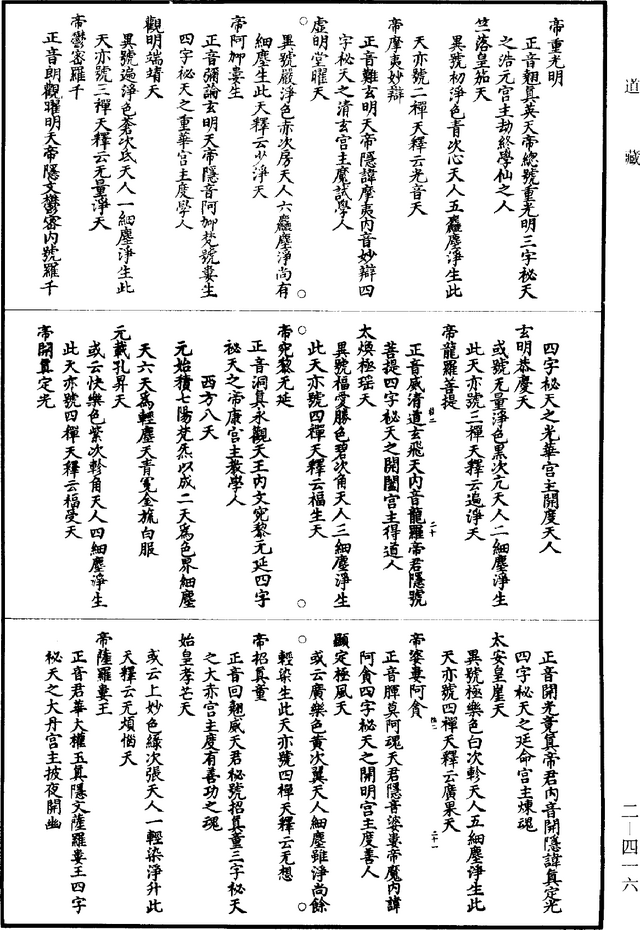 道藏
帝重光明
正音翹真英天帝總號重光明三字秘天
之浩元宫主劫終學仙之人
竺落皇笳天
異號初淨色青次心天人五麤塵淨生此
天亦號二禪天釋云光音天
帝摩夷妙辯
正音難玄明天帝隱諱摩夷内音妙辯四
字秘天之清玄宫主魔試學人
虛明堂曜天
異號嚴淨色赤次房天人六麤塵淨尚有
細塵生此天釋云少淨天
帝阿㨔婁生
正音彌論玄明天帝隱音阿㨔梵號婁生
四字秘天之重華宫主度學人
觀明端靖天
異號遍淨色蒼次氐天人一細塵淨生此
天亦號三禪天釋云无量淨天
帝鬱密羅千
正音朗觀曜明天帝隱文鬱密内號羅千
四字秘天之光華宫主開度天人
玄明恭慶天
或號无量淨色黑次亢天人二細塵淨生
此天亦號三禪天釋云遍淨天
帝龍羅菩提
正音威清道玄飛天内音龍羅帝君隱號
菩提四字秘天之開闓宫主得道人
二十
太煥極瑶天
異號福受勝色碧次角天人三細塵淨生
此天亦號四禪天釋云福生天
帝宛黎无延
正音洞真永觀天王内文宛黎无延四字
秘天之帝康宫主教學人
西方八天
元始積七陽梵炁以成二天爲色界細塵
天六天爲輕塵天青冕金旒白服
元載孔昇天
或云快樂色紫次軫角天人四細塵淨生
此天亦號四禪天釋云福受天
帝開真定光
正音開光竟真帝君内音開隱諱真定光
四字秘天之延命宫主煉魂
太安皇崖天
異號極樂色白次軫天人五細塵淨生此
天亦號四禪天釋云廣果天
二十一
帝婆婁阿貪
正音輝莫阿魂天君隱音婆婁帝魔内諱
阿貪四字秘天之開明宫主度善人
顯定極風天
或云廣樂色黄次翼天人細塵雖淨尚餘
輕染生此天亦號四禪天釋云无想
帝招真童
正音回翹威天君秘號招真童三字秘天
之大赤宫主度有善功之魂
始皇孝芒天
或云上妙色綠次張天人一輕染淨升此
天釋云无煩惱天
帝薩羅婁王
正音君華大權五真隱文薩羅婁王四字
秘天之大丹宫主披夜開幽
二—四一六